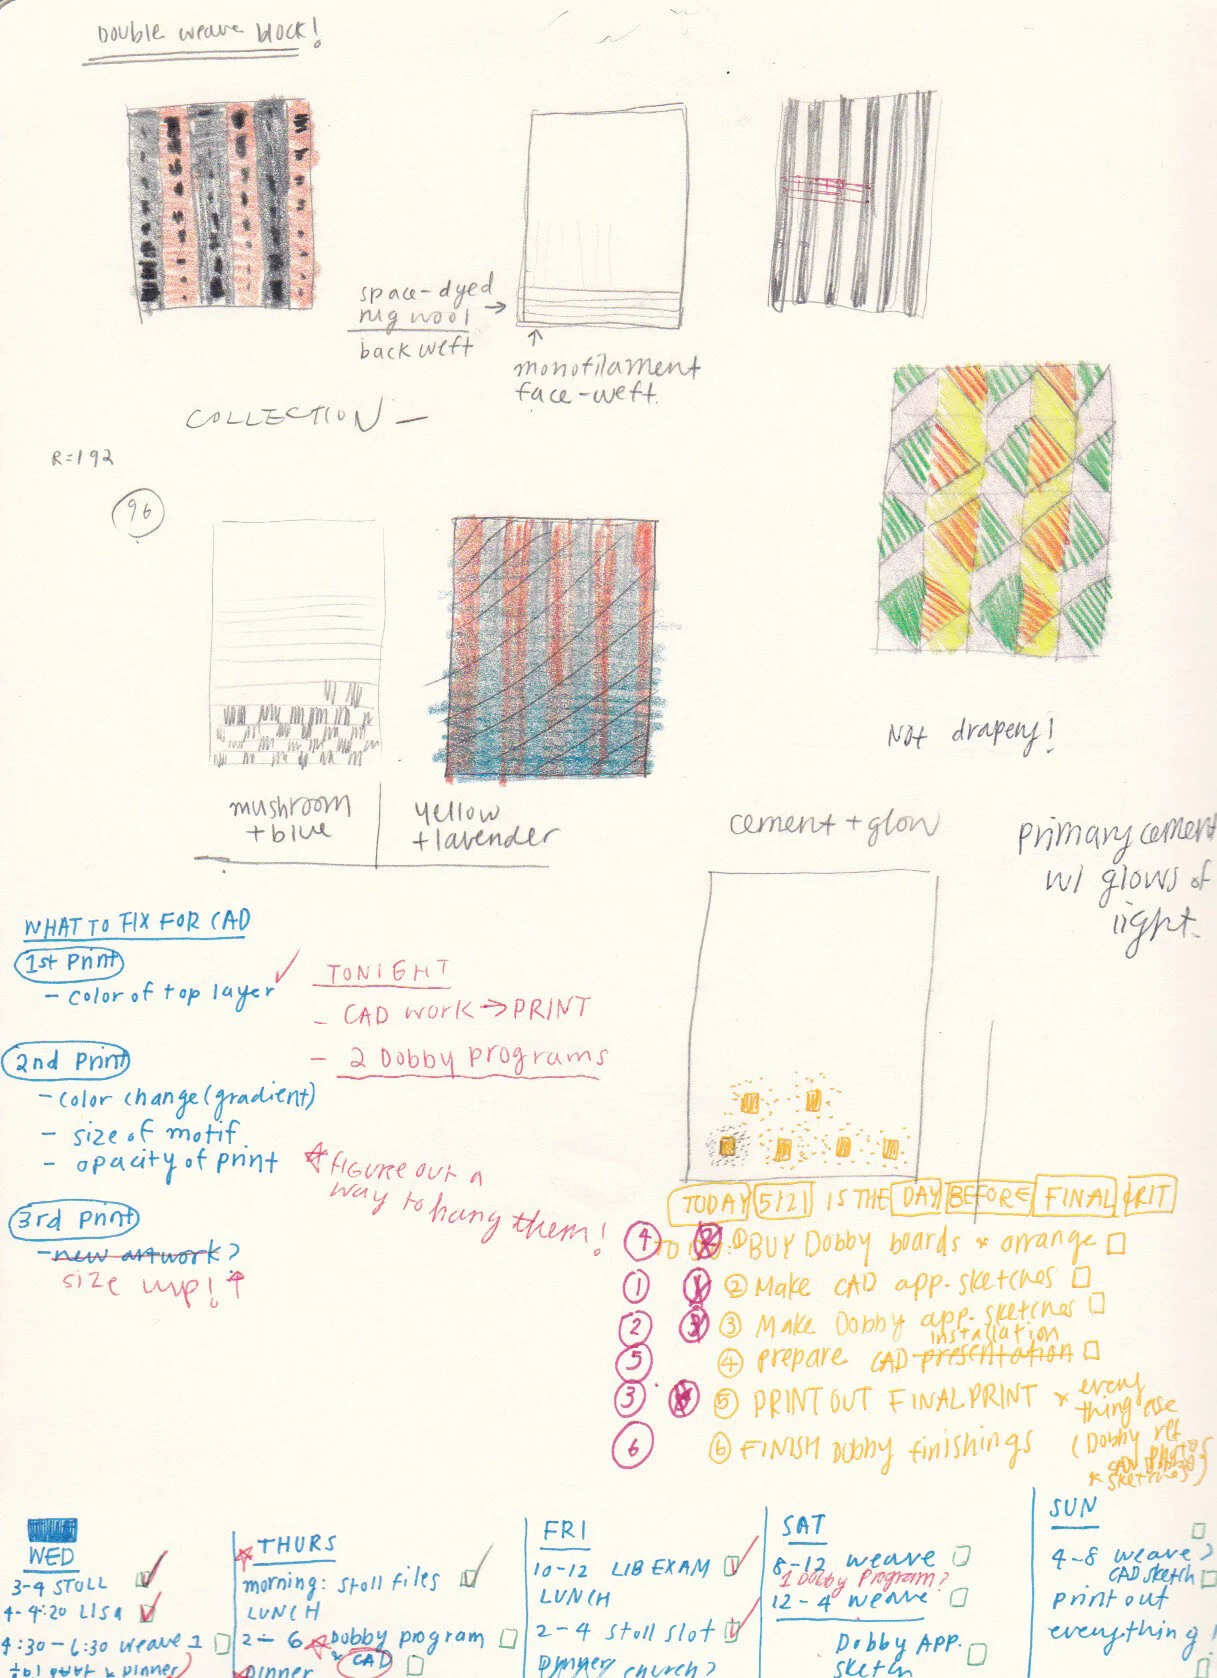 Double weave block!
space-dyed
rug wool
back weft
monofilament
face-weft.
COLLECTION —
R=192
96
Not drapery!
mushroom
+ blue
yellow
+ lavender
cement + glow
primary cement
w/ glows of
light.
WHAT TO FIX FOR CAD
1st Print
- color of top layer
TONIGHT
- CAD work → PRINT
- 2 Dobby programs
2nd Print
- color change (gradient)
- size of motif
- opacity of print
figure out a
way to hang them!
3rd print
- new artwork?
size up! ↑
TODAY 5/21 IS THE DAY BEFORE FINAL CRIT
4 2 ① BUY Dobby boards * arrange
1 1 ② Make CAD app. sketches
2 3 ③ Make Dobby app. sketches
installation
5 ④ prepare CAD presentation
3 ⑤ PRINT OUT FINAL PRINT * every
thing else
6 ⑥ FINISH Dobby finishings (Dobby ref
photos
CAD Dobby
* sketches)
WED
3-4 STOLL
4-4:20 Lisa
4:30-6:30 weave 1
THURS
morning: stoll files
LUNCH
2-6 Dobby program
* CAD
Dinner
FRI
10-12 LIB EXAM
LUNCH
2-4 Stoll slot
Dinner
church?
SAT
8-12 weave
1 Dobby Program?
12-4 weave
Dobby App.
sketch
SUN
4-8 weave?
CAD sketch
print out
everything!